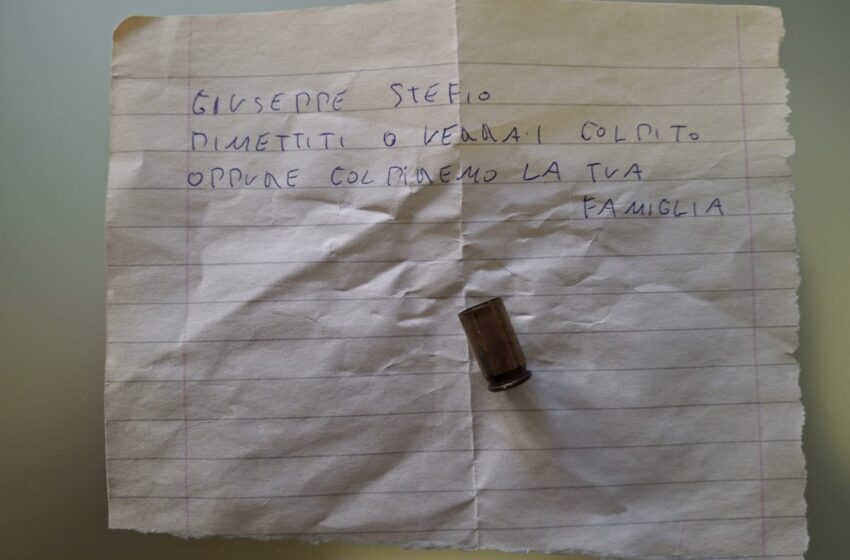 GIUSEPPE STEFIO
DIMETTITI O VERRAI COLPITO
OPPURE COLPIREMO LA TUA
FAMIGLIA